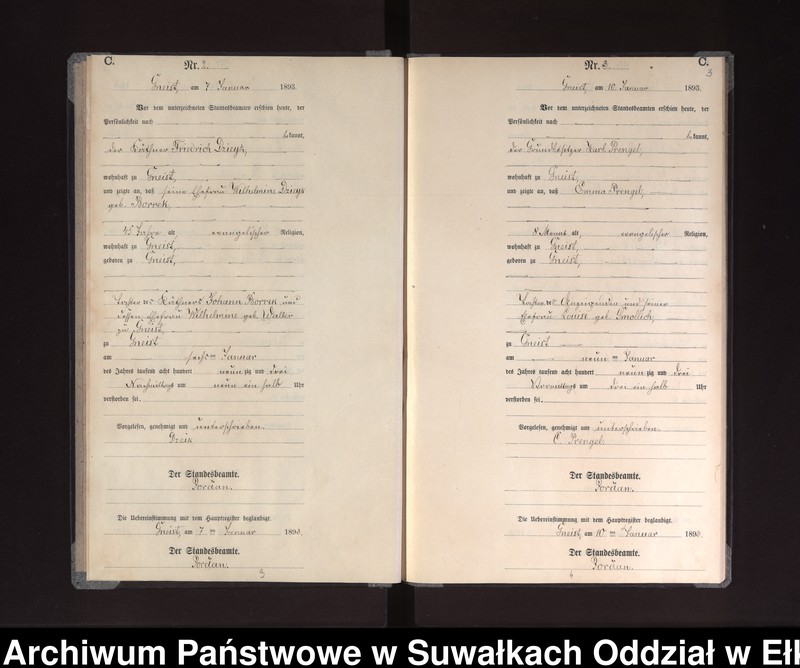 C.
Nr. 2.
Gneist, am 7 Januar 1893.
Vor dem unterzeichneten Standesbeamten erschien heute, der
Persönlichkeit nach
bekannt,
der Käthner Friedrich
wohnhaft zu Gneist,
und zeigte an, daß seine Ehefrau Wilhelmine
geb. Borrek,
45 Jahre alt, evangelischer Religion,
wohnhaft zu Gneist,
geboren zu Gneist,
Tochter des Käthners Johann Borrek und
dessen Ehefrau Wilhelmine geb. Walter
zu Gneist
zu Gneist
am sechsten Januar
des Jahres tausend acht hundert neunzig und drei
Nachmittags um neun ein halb Uhr
verstorben sei.
Vorgelesen, genehmigt und unterschrieben.
Der Standesbeamte.
Jordan.
Die Uebereinstimmung mit dem Hauptregister beglaubigt.
Gneist, am 7ten Januar 1893.
Der Standesbeamte.
Jordan.
C.
3
Nr. 3.
Gneist, am 10. Januar 1893.
Vor dem unterzeichneten Standesbeamten erschien heute, der
Persönlichkeit nach
bekannt,
der Grundbesitzer Karl Prengel,
wohnhaft zu Gneist,
und zeigte an, daß Emma Prengel,
8 Monat alt, evangelischer Religion,
wohnhaft zu Gneist,
geboren zu Gneist,
Tochter des Anzeigenden und seiner
Ehefrau Louise geb. Smollich,
zu Gneist
am neunten Januar
des Jahres tausend acht hundert neunzig und drei
Vormittags um drei ein halb Uhr
verstorben sei.
Vorgelesen, genehmigt und unterschrieben.
C. Prengel.
Der Standesbeamte.
Jordan.
Die Uebereinstimmung mit dem Hauptregister beglaubigt.
Gneist, am 10ten Januar 1893.
Der Standesbeamte.
Jordan.
Archiwum Państwowe w Suwałkach Oddział w Eł